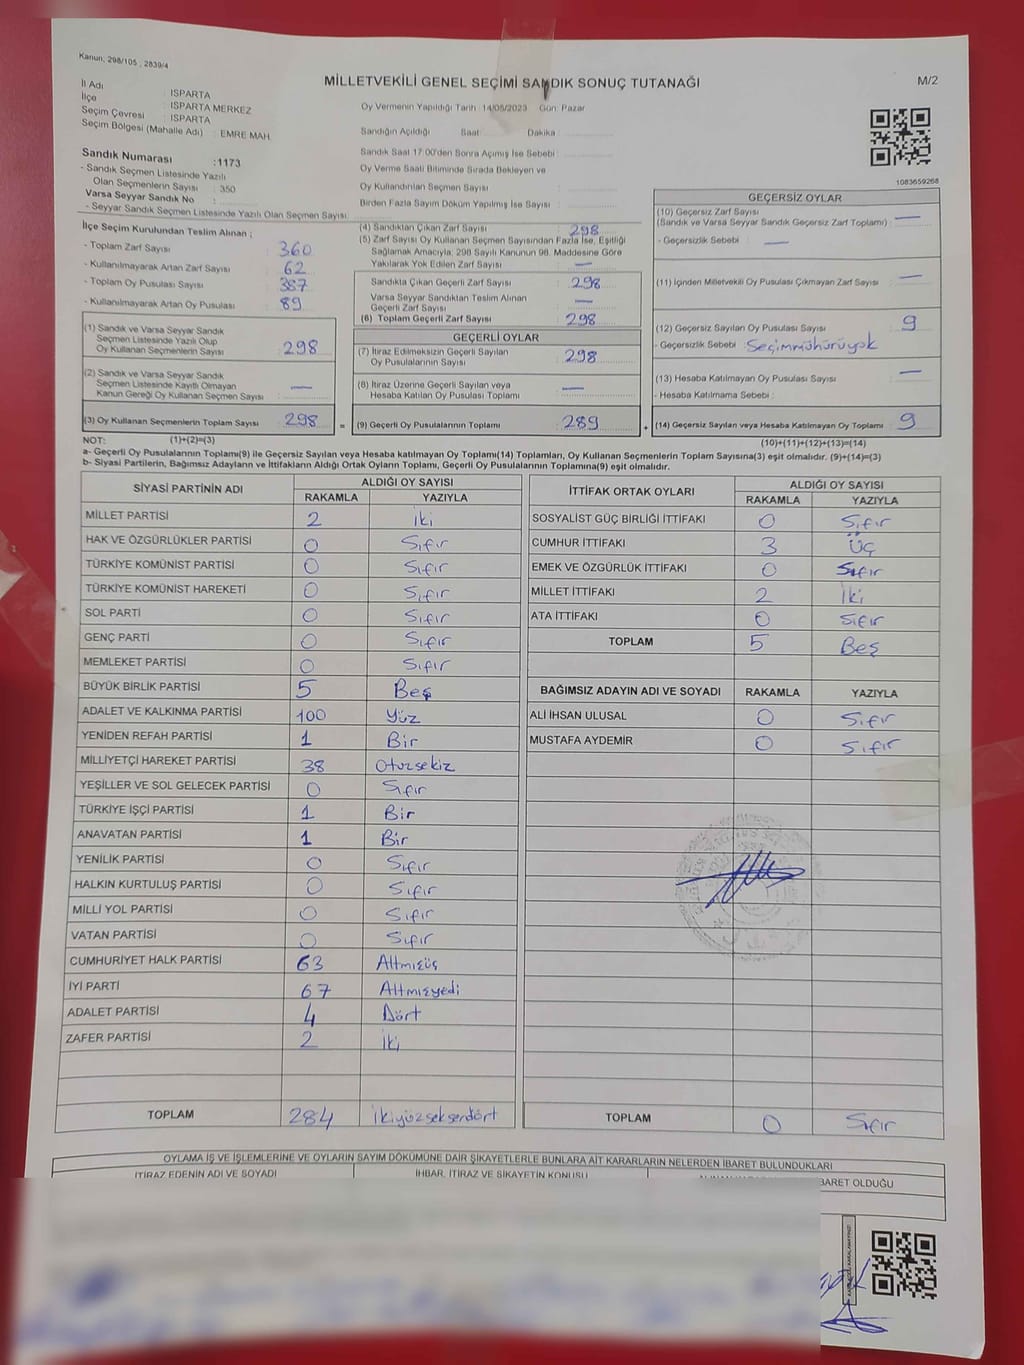 Kanun, 298/105 , 2839/4
MİLLETVEKİLİ GENEL SEÇİMİ SANDIK SONUÇ TUTANAĞI
M/2
İl Adı : ISPARTA
İlçe : ISPARTA MERKEZ
Seçim Çevresi : ISPARTA
Seçim Bölgesi (Mahalle Adı) : EMRE MAH.
Sandık Numarası :1173
- Sandık Seçmen Listesinde Yazılı
Olan Seçmenlerin Sayısı : 350
Varsa Seyyar Sandık No :
- Seyyar Sandık Seçmen Listesinde Yazılı Olan Seçmen Sayısı:
Oy Vermenin Yapıldığı Tarih :14/05/2023 Gün: Pazar
Sandığın Açıldığı Saat: Dakika:
Sandık Saat 17:00'den Sonra Açımış İse Sebebi :
Oy Verme Saati Bitiminde Sırada Bekleyen ve
Oy Kullandırılan Seçmen Sayısı :
Birden Fazla Sayım Döküm Yapılmış İse Sayısı :
1083659268
İlçe Seçim Kurulundan Teslim Alınan ;
- Toplam Zarf Sayısı : 360
- Kullanılmayarak Artan Zarf Sayısı : 62
- Toplam Oy Pusulası Sayısı : 387
- Kullanılmayarak Artan Oy Pusulası : 89
(1) Sandık ve Varsa Seyyar Sandık
Seçmen Listesinde Yazılı Olup
Oy Kullanan Seçmenlerin Sayısı : 298
(2) Sandık ve Varsa Seyyar Sandık
Seçmen Listesinde Kayıtlı Olmayan
Kanun Gereği Oy Kullanan Seçmen Sayısı : —
(3) Oy Kullanan Seçmenlerin Toplam Sayısı : 298
(4) Sandıktan Çıkan Zarf Sayısı : 298
(5) Zarf Sayısı Oy Kullanan Seçmen Sayısından Fazla İse, Eşitliği
Sağlamak Amacıyla; 298 Sayılı Kanunun 98. Maddesine Göre
Yakılarak Yok Edilen Zarf Sayısı : —
Sandıkta Çıkan Geçerli Zarf Sayısı : 298
Varsa Seyyar Sandıktan Teslim Alınan
Geçerli Zarf Sayısı : —
(6) Toplam Geçerli Zarf Sayısı : 298
GEÇERLİ OYLAR
(7) İtiraz Edilmeksizin Geçerli Sayılan
Oy Pusulalarının Sayısı : 298
(8) İtiraz Üzerine Geçerli Sayılan veya
Hesaba Katılan Oy Pusulası Toplamı : —
= (9) Geçerli Oy Pusulalarının Toplamı : 289
GEÇERSİZ OYLAR
(10) Geçersiz Zarf Sayısı
(Sandık ve Varsa Seyyar Sandık Geçersiz Zarf Toplamı) : —
- Geçersizlik Sebebi : —
(11) İçinden Milletvekili Oy Pusulası Çıkmayan Zarf Sayısı : —
(12) Geçersiz Sayılan Oy Pusulası Sayısı : 9
- Geçersizlik Sebebi : Seçimmühürüyok
(13) Hesaba Katılmayan Oy Pusulası Sayısı : —
- Hesaba Katılmama Sebebi :
+ (14) Geçersiz Sayılan veya Hesaba Katılmayan Oy Toplamı : 9
NOT: (1)+(2)=(3)
(10)+(11)+(12)+(13)=(14)
a- Geçerli Oy Pusulalarının Toplamı(9) ile Geçersiz Sayılan veya Hesaba katılmayan Oy Toplamı(14) Toplamları, Oy Kullanan Seçmenlerin Toplam Sayısına(3) eşit olmalıdır. (9)+(14)=(3)
b- Siyasi Partilerin, Bağımsız Adayların ve İttifakların Aldığı Ortak Oyların Toplamı, Geçerli Oy Pusulalarının Toplamına(9) eşit olmalıdır.
SİYASİ PARTİNİN ADI ALDIĞI OY SAYISI
RAKAMLA YAZIYLA
MİLLET PARTİSİ 2 iki
HAK VE ÖZGÜRLÜKLER PARTİSİ 0 Sıfır
TÜRKİYE KOMÜNİST PARTİSİ 0 Sıfır
TÜRKİYE KOMÜNİST HAREKETİ 0 Sıfır
SOL PARTİ 0 Sıfır
GENÇ PARTİ 0 Sıfır
MEMLEKET PARTİSİ 0 Sıfır
BÜYÜK BİRLİK PARTİSİ 5 Beş
ADALET VE KALKINMA PARTİSİ 100 Yüz
YENİDEN REFAH PARTİSİ 1 Bir
MİLLİYETÇİ HAREKET PARTİSİ 38 Otuzsekiz
YEŞİLLER VE SOL GELECEK PARTİSİ 0 Sıfır
TÜRKİYE İŞÇİ PARTİSİ 1 Bir
ANAVATAN PARTİSİ 1 Bir
YENİLİK PARTİSİ 0 Sıfır
HALKIN KURTULUŞ PARTİSİ 0 Sıfır
MİLLİ YOL PARTİSİ 0 Sıfır
VATAN PARTİSİ 0 Sıfır
CUMHURİYET HALK PARTİSİ 63 Altmışüç
İYİ PARTİ 67 Altmışyedi
ADALET PARTİSİ 4 Dört
ZAFER PARTİSİ 2 iki
TOPLAM 284 ikiyüzseksendört
İTTİFAK ORTAK OYLARI ALDIĞI OY SAYISI
RAKAMLA YAZIYLA
SOSYALİST GÜÇ BİRLİĞİ İTTİFAKI 0 Sıfır
CUMHUR İTTİFAKI 3 Üç
EMEK VE ÖZGÜRLÜK İTTİFAKI 0 Sıfır
MİLLET İTTİFAKI 2 İki
ATA İTTİFAKI 0 Sıfır
TOPLAM 5 Beş
BAĞIMSIZ ADAYIN ADI VE SOYADI RAKAMLA YAZIYLA
ALİ İHSAN ULUSAL 0 Sıfır
MUSTAFA AYDEMİR 0 Sıfır
TOPLAM 0 Sıfır
OYLAMA İŞ VE İŞLEMLERİNE VE OYLARIN SAYIM DÖKÜMÜNE DAİR ŞİKAYETLERLE BUNLARA AİT KARARLARIN NELERDEN İBARET BULUNDUKLARI
İTİRAZ EDENİN ADI VE SOYADI
İHBAR, İTİRAZ VE ŞİKAYETİN KONUSU
BARET OLDUĞU